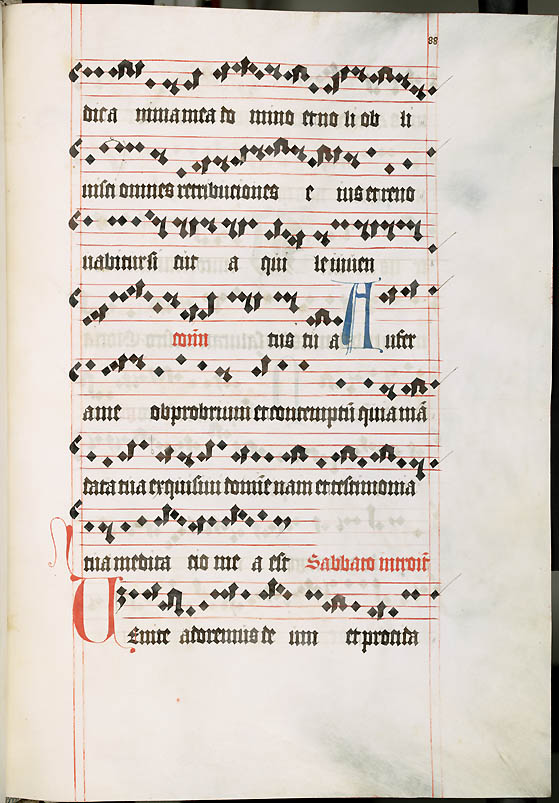 88
dica nima mea do mino et no li ob li
uisci omnes retributiones e ius et reno
uabitur si cut a qui le iuuen
com̄ tus tu a A ufer
a me obprobrium et contemptū quia mā
data tua exquisiui domīe nam et testimonia
tua medita tio me a est Sabbato introit̄
Uenite adoremus de um et procida